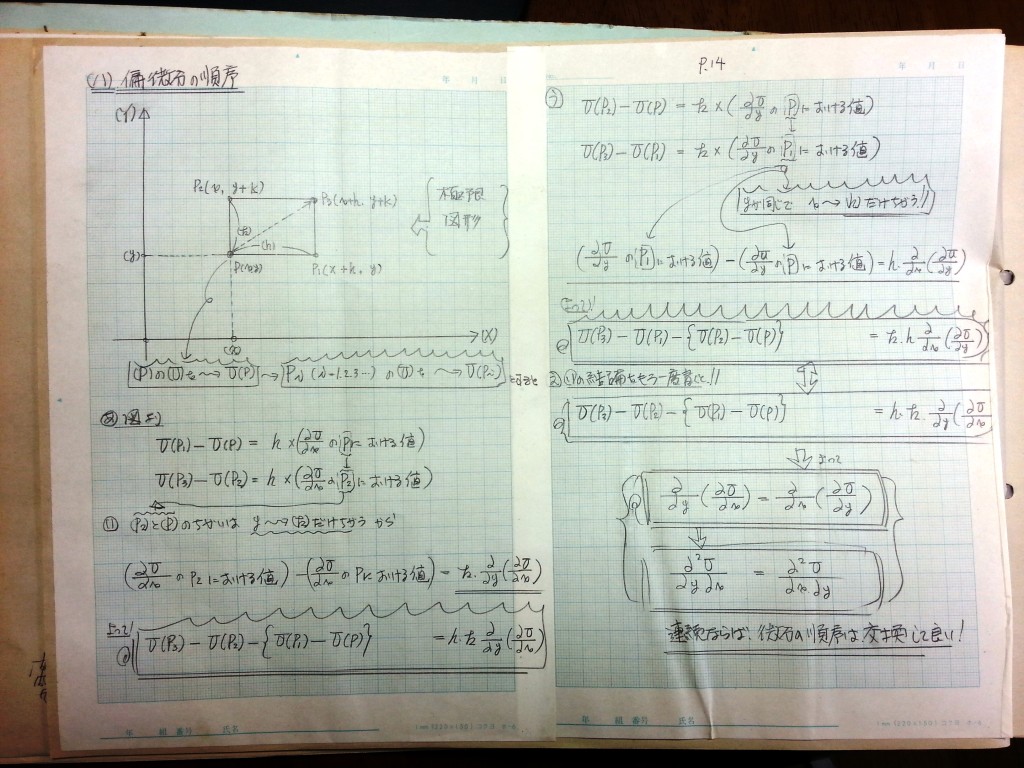 (1) 偏微分の順序
年 月 日
(Y)
P₂(x, y+k)
P₃(x+h, y+k)
(k)
(h)
(y)
P(x,y)
P₁(x+h, y)
図形
(x)
(X)
(P)の(U)を〜→ U(P) → Pₙ (N=1,2,3…) の(U)を 〜→ U(Pₙ) とすると
図より
U(P₁) − U(P) = h × (∂U/∂x の P における値)
U(P₃) − U(P₂) = h × (∂U/∂x の P₂ における値)
(P₂)と(P)のちがいは y〜→(k)だけちがうから
(∂U/∂x の P₂ における値) − (∂U/∂x の P における値) = k・∂/∂y(∂U/∂x)
よって!
U(P₃) − U(P₂) − {U(P₁) − U(P)} = h・k ∂/∂y(∂U/∂x)
年 組 番号 氏名
P.14
年 月 日
U(P₂) − U(P) = k × (∂U/∂y の P における値)
U(P₃) − U(P₁) = k × (∂U/∂y の P₁ における値)
yが同じで x 〜→ (h)だけちがう!!
(∂U/∂y の P₁ における値) − (∂U/∂y の P における値) = h・∂/∂x(∂U/∂y)
よって!
U(P₃) − U(P₁) − {U(P₂) − U(P)} = k・h ∂/∂x(∂U/∂y)
の結論をもう一度書くと!!
U(P₃) − U(P₂) − {U(P₁) − U(P)} = h・k・∂/∂y(∂U/∂x
よって
∂/∂y(∂U/∂x) = ∂/∂x(∂U/∂y)
∂²U/∂y∂x = ∂²U/∂x・∂y
連続ならば、微分の順序は交換して良い!
年 組 番号 氏名